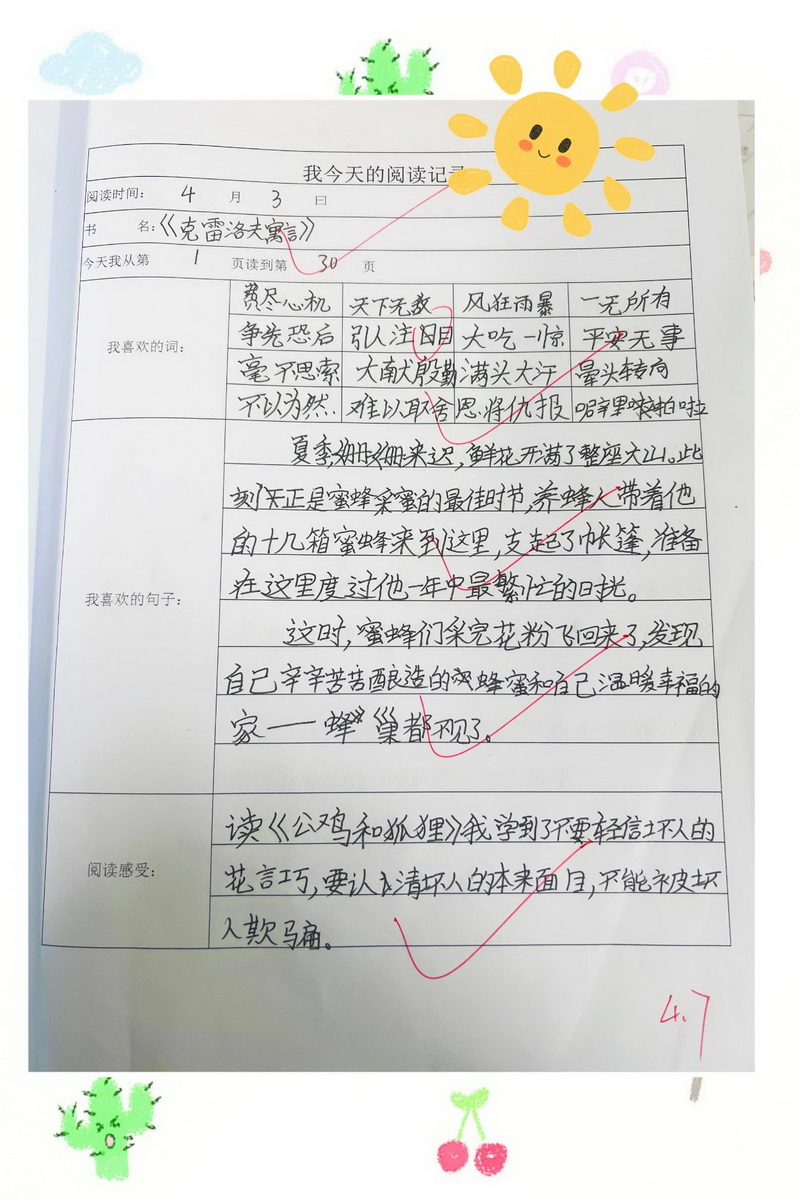 我今天的阅读记
阅读时间: 4 月 3 日
书 名:《克雷洛夫寓言》
今天我从第 1 页读到第 30 页
我喜欢的词:
费尽心机 天下无敌 风狂雨暴 一无所有
争先恐后 引人注目 大吃一惊 平安无事
毫不思索 大献殷勤 满头大汗 晕头转向
不以为然. 难以取舍 恩将仇报
我喜欢的句子:
夏季姗姗来迟,鲜花开满了整座大山。此
刻天正是蜜蜂采蜜的最佳时节,养蜂人带着他
的十几箱蜜蜂来到这里,支起了帐篷,准备
在这里度过他一年中最繁忙的时光。
这时,蜜蜂们采完花粉飞回来了,发现
自己辛辛苦苦酿造的蜂蜜和自己温暖幸福的
家——蜂巢都不见了。
阅读感受:
读《公鸡和狐狸》我学到了不要轻信坏人的
花言巧,要认清坏人的本来面目,不能被坏
人欺骗。
4.7